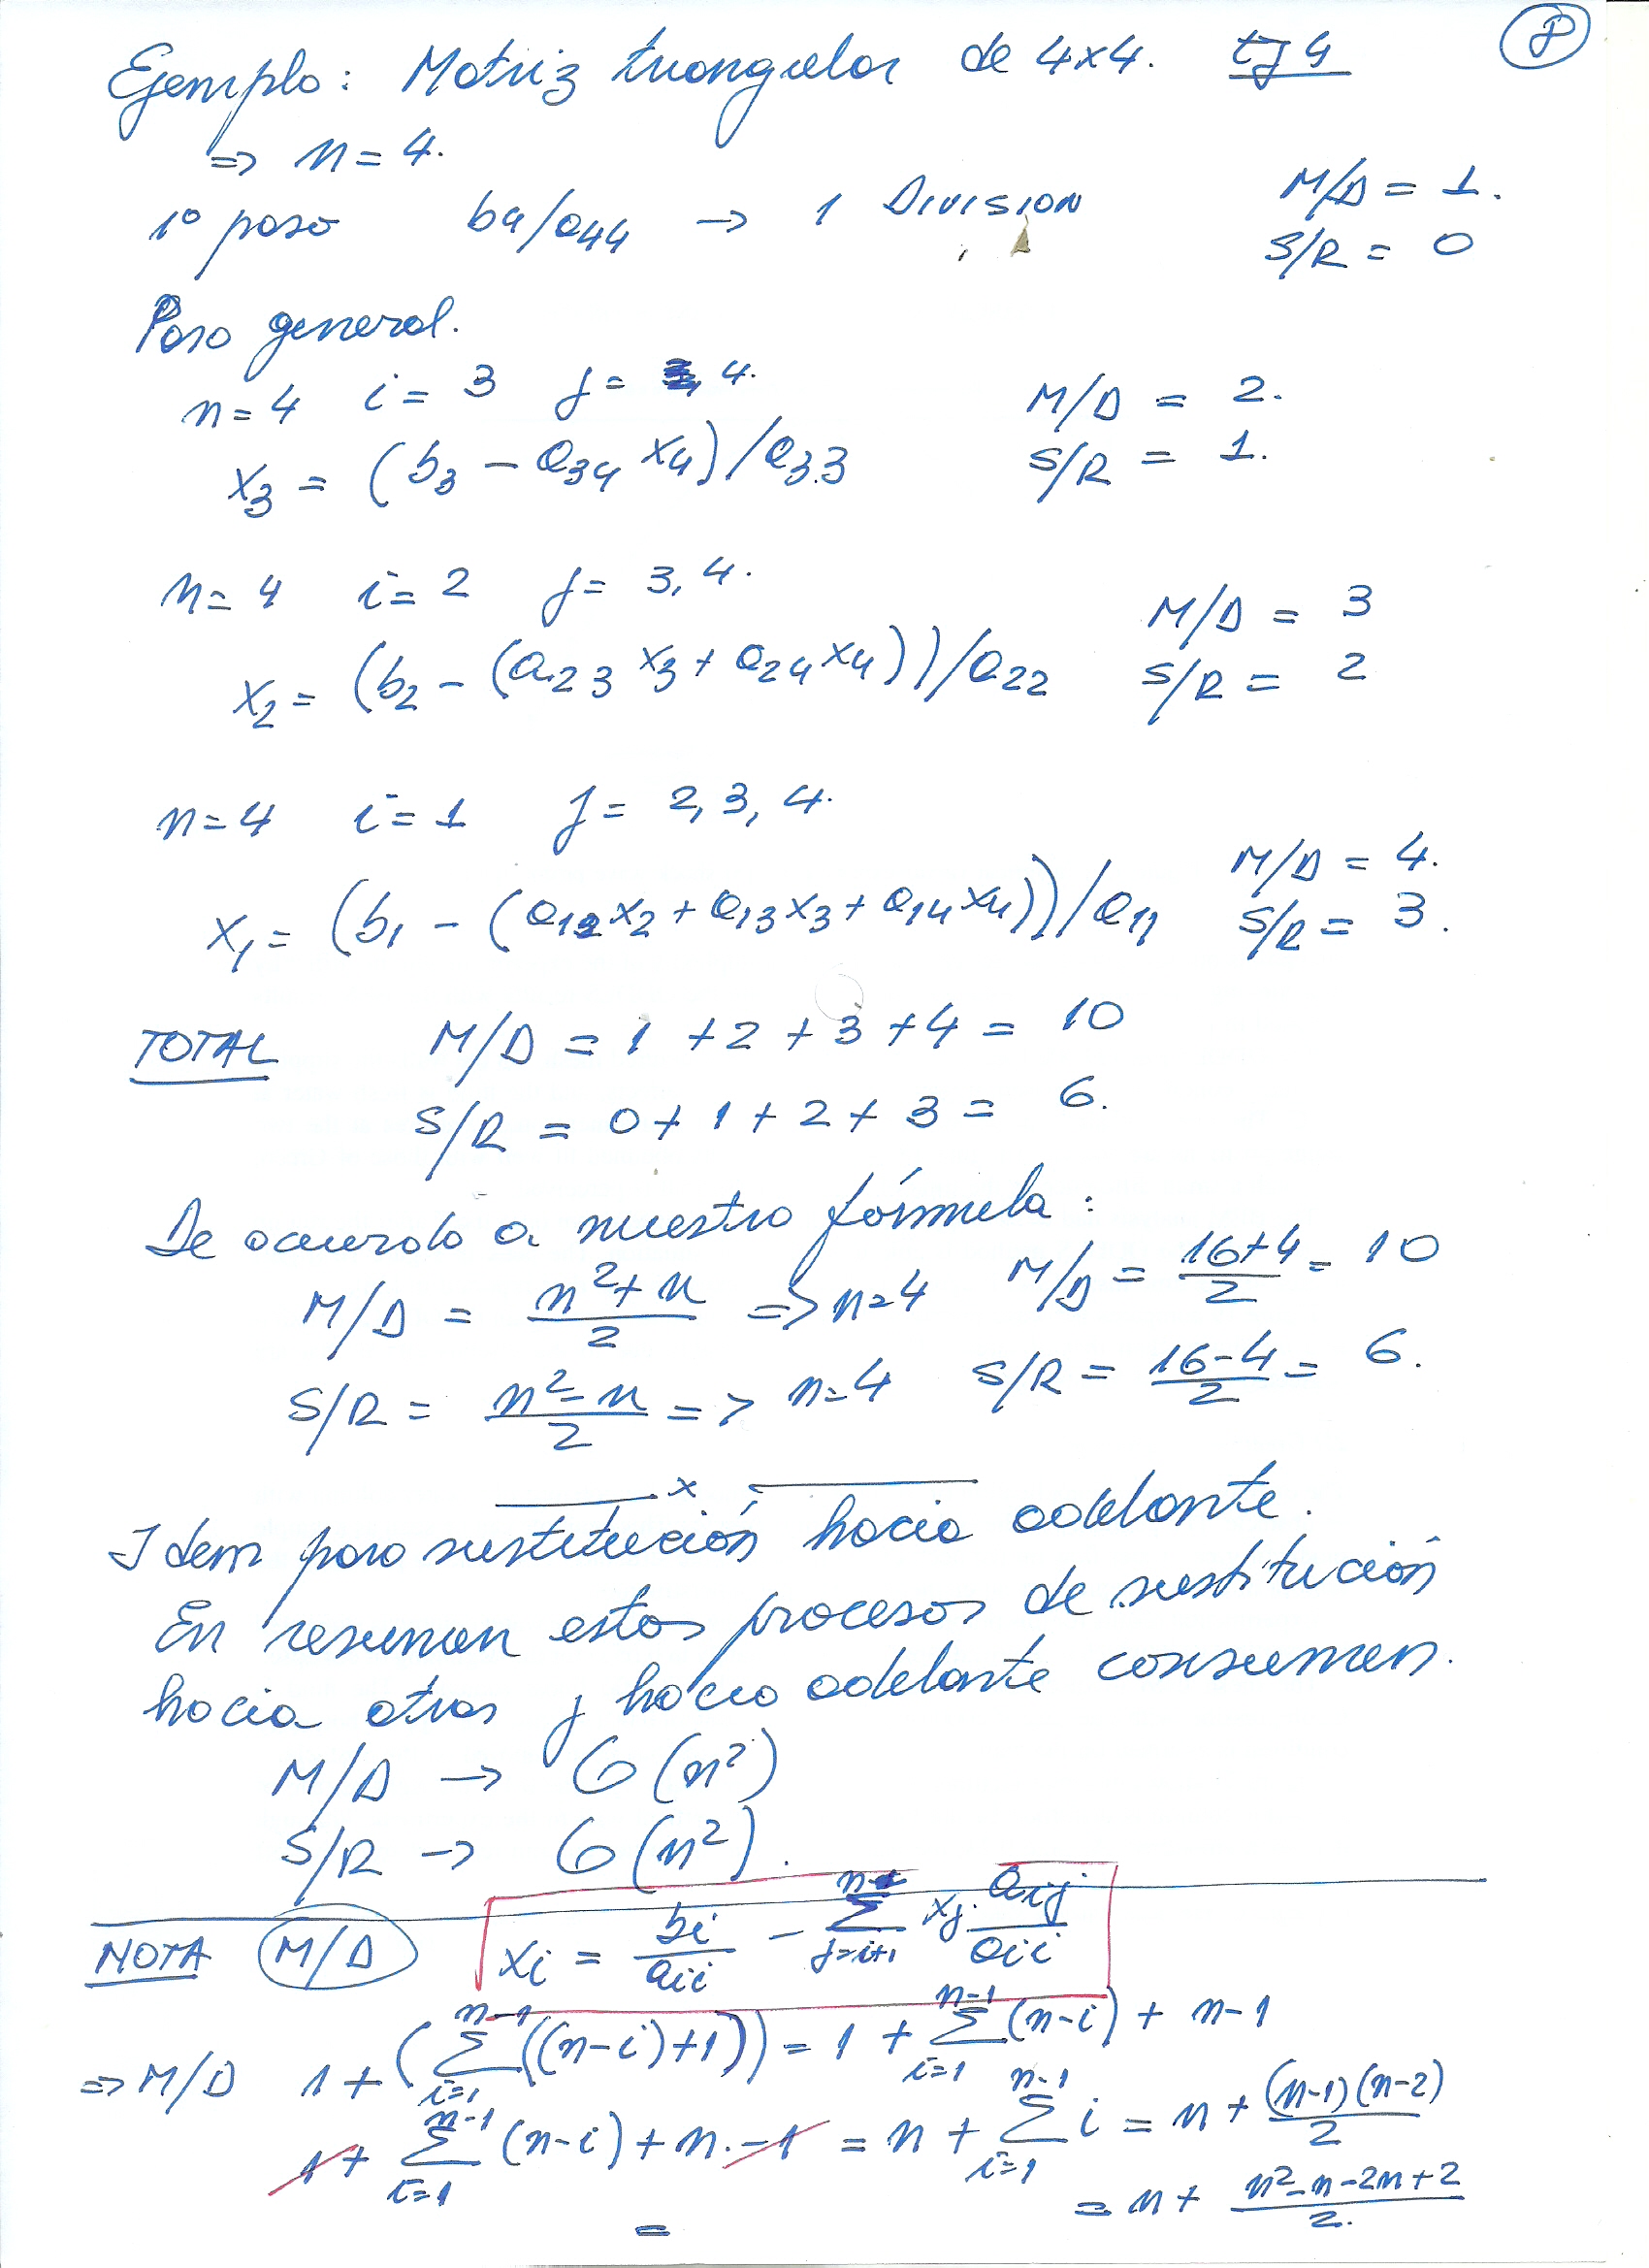 Ejemplo: Matriz triangular de 4x4. ej 4 8
=> n = 4.
1º paso b4/a44 -> 1 DIVISION M/D = 1.
S/R = 0
Paso general.
n=4 i = 3 j = 4. M/D = 2.
x3 = (b3 - a34 x4)/a33 S/R = 1.
n=4 i=2 j= 3,4. M/D = 3
x2 = (b2 - (a23 x3 + a24 x4))/a22 S/R = 2
n=4 i=1 j= 2,3,4. M/D = 4.
x1 = (b1 - (a12x2 + a13x3 + a14x4))/a11 S/R = 3.
TOTAL M/D = 1 + 2 + 3 + 4 = 10
S/R = 0 + 1 + 2 + 3 = 6.
De acuerdo a nuestra fórmula:
M/D = (n²+n)/2 => n=4 M/D = (16+4)/2 = 10
S/R = (n²-n)/2 => n=4 S/R = (16-4)/2 = 6.
x
Idem para sustitución hacia adelante.
En resumen estos procesos de sustitución
hacia atras y hacia adelante consumen.
M/D -> O(n²)
S/R -> O(n²).
NOTA M/D xi = bi/aii - Σ j=i+1 xj. aij/aii
=> M/D 1 + (Σ i=1 n-1 ((n-i)+1)) = 1 + Σ i=1 n-1 (n-i) + n-1
1 + Σ i=1 n-1 (n-i) + n.-1 = n + Σ i=1 n-1 i = n + (n-1)(n-2)/2
= = n + (n²-n-2n+2)/2.